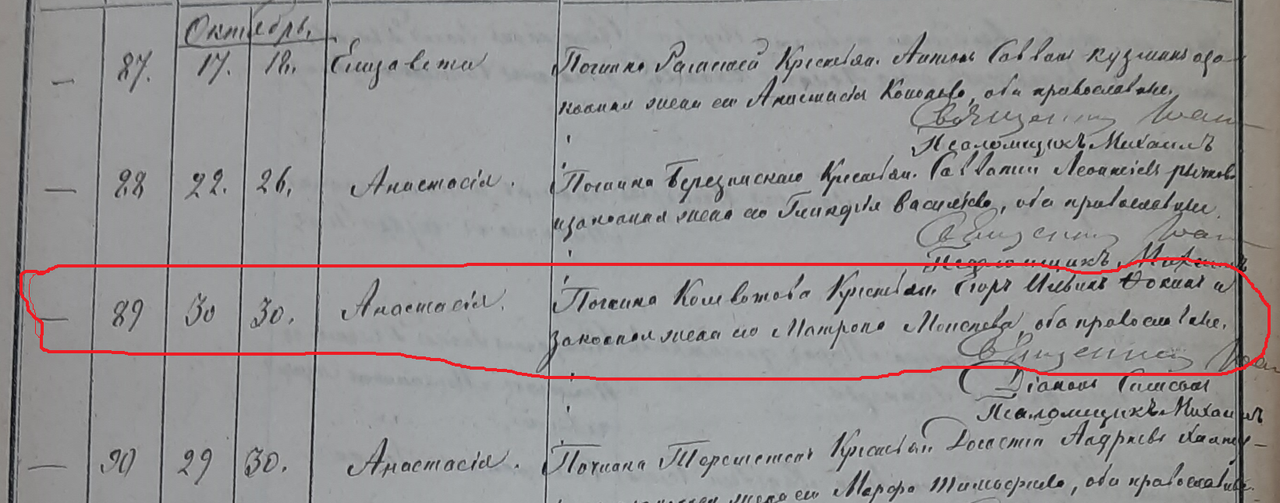 Октябрь.
87. 17. 18. Елизавета Починка Крестьян. Антон Савван Кузмин и за-
конная жена его Анастасия, оба православные.
Священник Иоан
Псаломщикъ Михаилъ
88 22. 26. Анастасія. Починка Березинскаго Крестьян. Савватий Леонтіевъ
и законная жена его Васильева, оба православные.
Священник Иоан
Псаломщикъ Михаилъ
89 30 30. Анастасія. Починка Крестьян. Егоръ Ильинъ и
законная жена его Матрона Моисеева, оба православные.
Священник Иоан
Діаконъ
Псаломщикъ Михаилъ
90 29 30. Анастасія. Починка Крестьян. Андреевъ
жена его Марфа Тимофеева, оба православные.